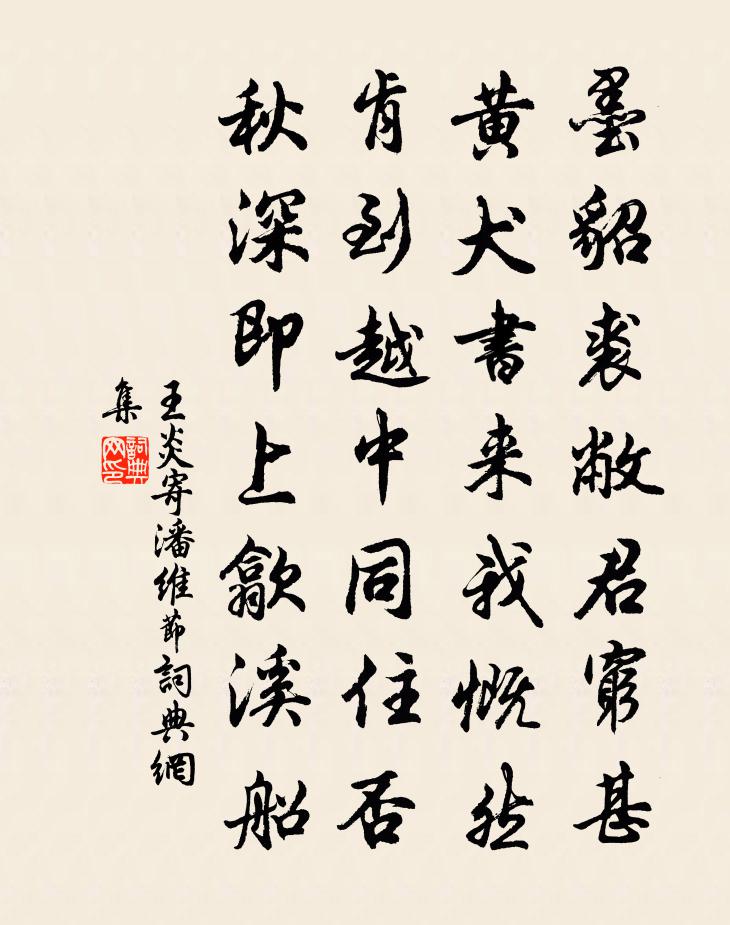 墨貂裘敝君窮甚
黄犬書来我慨然
肯到越中同住否
秋深即上歙溪船
王炎寄潘維節詞典網
集
詞典网印